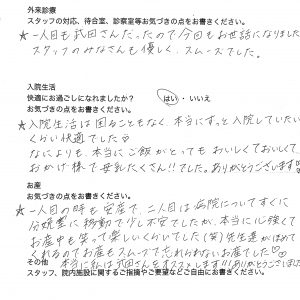 外来診療
スタッフの対応、待合室、診察室等お気づきの点をお書きください。
★一人目も武田さんだったので今回もお世話になりました
スタッフのみなさんも優しく、スムーズでした。
入院生活
快適にお過ごしになれましたか? はい・いいえ
お気づきの点をお書きください。
★入院生活は困ることもなく、本当にずっと入院していたい
くらい快適でした♡
なによりも、本当にご飯がとってもおいしくておいしくて
おかげ様で母乳たくさん!!でした。ありがとうございます♡
お産
お気づきの点をお書きください。
★一人目の時も安産で、二人目は病院についてすぐに
分娩室に移動で少し不安でしたが、本当に心強くて
お産中も笑って楽しいくらいでした(笑)先生達がほめて
くれるのでお産もスムーズで忘れられないお産でした♡
その他 本当に私は武田さんをオススメします!!ありがとうございました
スタッフ、院内施設に関するご指摘やご要望などご自由にお書きください。